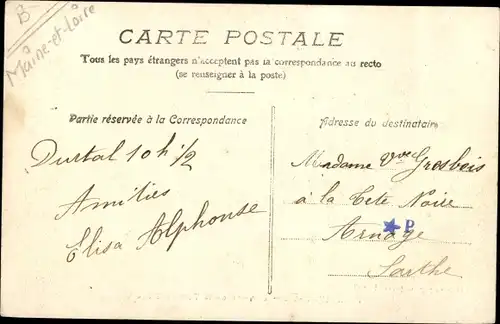 B-
Maine-et-Loire
CARTE POSTALE
Tous les pays étrangers n'acceptent pas la correspondance au recto
(se renseigner à la poste)
Partie réservée à la Correspondance
Durtal 10 h 1/2
Amitiés
Elisa Alphonse
Adresse du destinataire
Madame Vve Grosbois
à la Tete Noire
Arnage
P
Sarthe